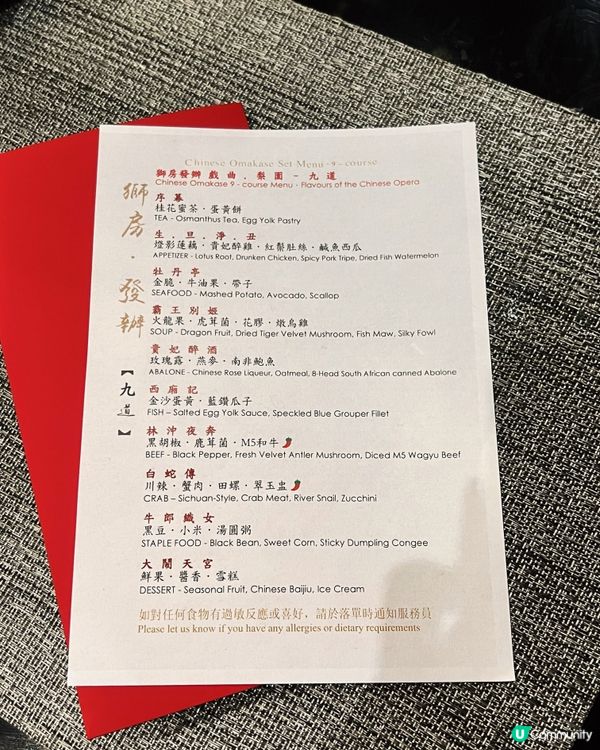 Chinese Omakase Set Menu - 9 - course
獅房發辦 戲曲．梨園 - 九道
Chinese Omakase 9 - course Menu - Flavours of the Chinese Opera
獅房·發辦
【九道】
序幕
桂花蜜茶·蛋黃餅
TEA - Osmanthus Tea, Egg Yolk Pastry
生．旦．淨．丑
燈影蓮藕·貴妃醉雞·紅鬃肚絲·鹹魚西瓜
APPETIZER - Lotus Root, Drunken Chicken, Spicy Pork Tripe, Dried Fish Watermelon
牡丹亭
金脆·牛油果·帶子
SEAFOOD - Mashed Potato, Avocado, Scallop
霸王別姬
火龍果·虎茸菌·花膠·燉烏雞
SOUP - Dragon Fruit, Dried Tiger Velvet Mushroom, Fish Maw, Silky Fowl
貴妃醉酒
玫瑰露·燕麥·南非鮑魚
ABALONE - Chinese Rose Liqueur, Oatmeal, 8-Head South African canned Abalone
西廂記
金沙蛋黃·藍鑽瓜子
FISH – Salted Egg Yolk Sauce, Speckled Blue Grouper Fillet
林沖夜奔
黑胡椒·鹿茸菌·M5和牛
BEEF - Black Pepper, Fresh Velvet Antler Mushroom, Diced M5 Wagyu Beef
白蛇傳
川辣·蟹肉·田螺·翠玉盅
CRAB – Sichuan-Style, Crab Meat, River Snail, Zucchini
牛郎織女
黑豆·小米·湯圓粥
STAPLE FOOD - Black Bean, Sweet Corn, Sticky Dumpling Congee
大鬧天宮
鮮果·醬香·雪糕
DESSERT - Seasonal Fruit, Chinese Baijiu, Ice Cream
如對任何食物有過敏反應或喜好，請於落單時通知服務員
Please let us know if you have any allergies or dietary requirements
U Community